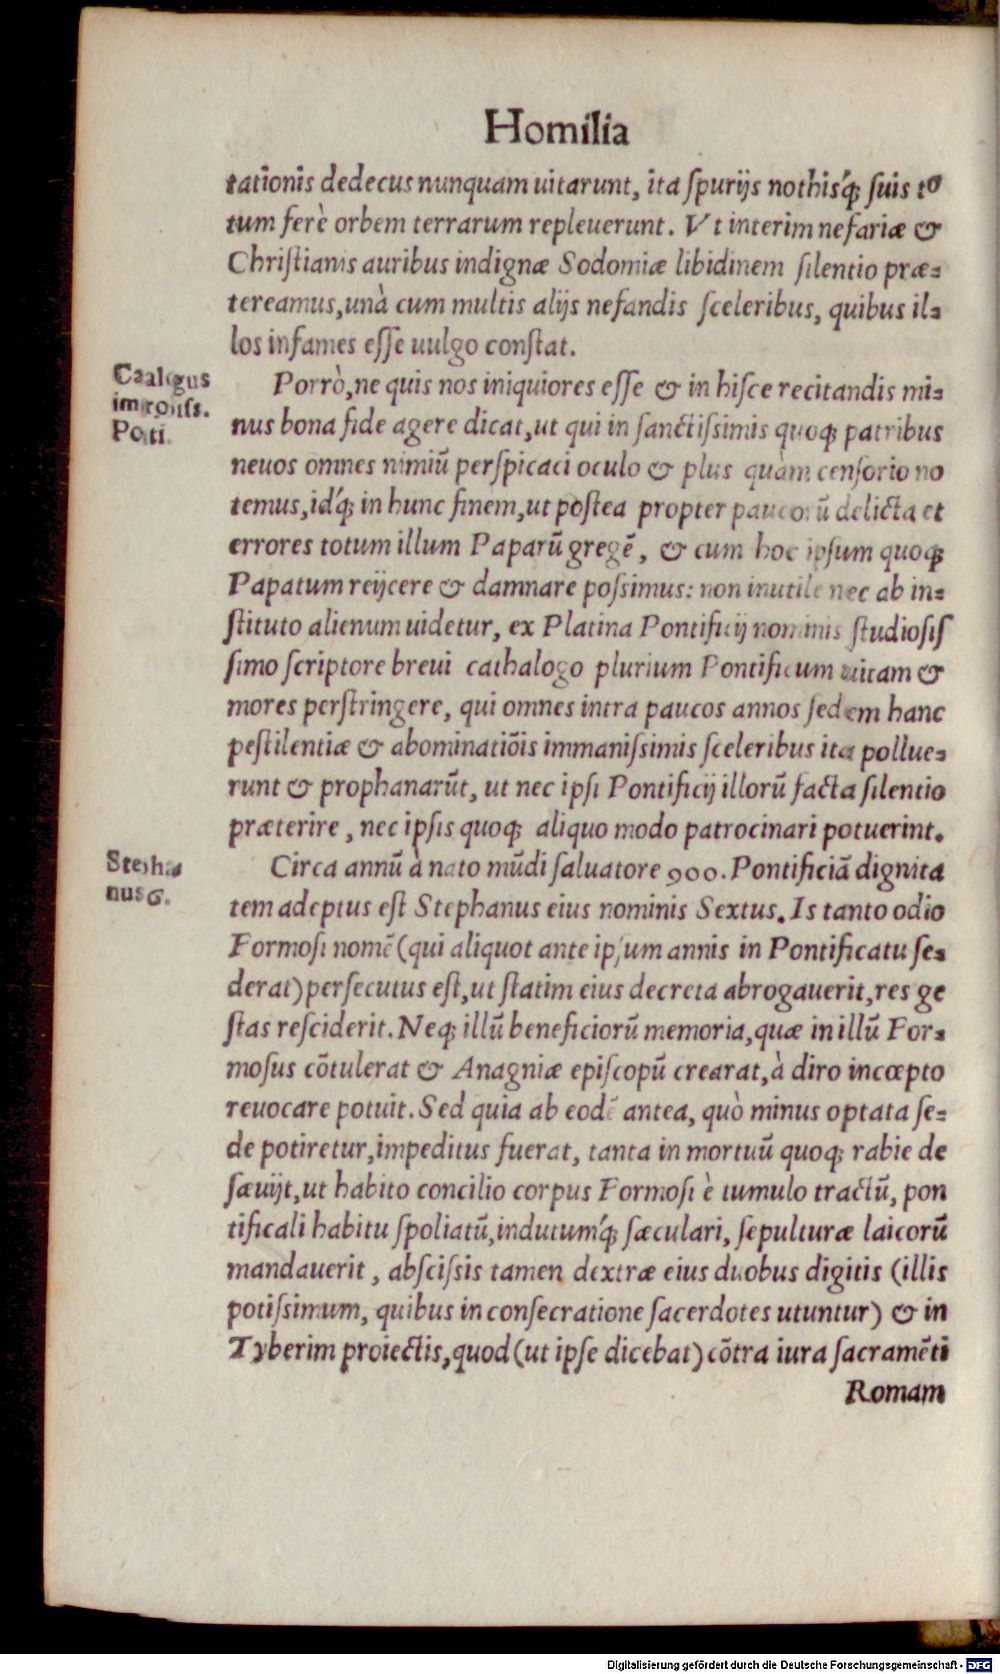 Homilia
tationis dedecus nunquam uitarunt, ita ſpurijs nothisq́; ſuis to
tum ferè orbem terrarum repleuerunt. Vt interim nefariæ &
Chriſtianis auribus indignæ Sodomiæ libidinem ſilentio præ-
tereamus, unà cum multis alijs nefandis ſceleribus, quibus il-
los infames eſſe uulgo conſtat.
Porrò, ne quis nos iniquiores eſſe & in hiſce recitandis mi-
nus bona fide agere dicat, ut qui in ſanctiſsimis quoq; patribus
neuos omnes nimiũ perſpicaci oculo & plus quàm cenſorio no
temus, idq́; in hunc finem, ut poſtea propter paucorũ delicta et
errores totum illum Paparũ gregẽ, & cum hoc ipſum quoq;
Papatum reijcere & damnare poſsimus: non inutile nec ab in-
ſtituto alienum uidetur, ex Platina Pontificij nominis ſtudioſiſ
ſimo ſcriptore breui cathalogo plurium Pontificum uitam &
mores perſtringere, qui omnes intra paucos annos ſedem hanc
peſtilentiæ & abominatiõis immaniſsimis ſceleribus ita pollue-
runt & prophanarũt, ut nec ipſi Pontificij illorũ facta ſilentio
præterire, nec ipſis quoq; aliquo modo patrocinari potuerint.
Circa annũ à nato mũdi ſaluatore 900. Pontificiã dignita
tem adeptus eſt Stephanus eius nominis Sextus. Is tanto odio
Formoſi nomẽ (qui aliquot ante ipſum annis in Pontificatu ſe-
derat) perſecutus eſt, ut ſtatim eius decreta abrogauerit, res ge
ſtas reſciderit. Neq; illũ beneficiorũ memoria, quæ in illũ For-
moſus cõtulerat & Anagniæ epiſcopũ crearat, à diro incœpto
reuocare potuit. Sed quia ab eodẽ antea, quò minus optata ſe-
de potiretur, impeditus fuerat, tanta in mortuũ quoq; rabie de
ſæuijt, ut habito concilio corpus Formoſi è tumulo tractũ, pon
tificali habitu ſpoliatũ, indutumq́; ſæculari, ſepulturæ laicorũ
mandauerit, abſciſsis tamen dextræ eius duobus digitis (illis
potiſsimum, quibus in conſecratione ſacerdotes utuntur) & in
Tyberim proiectis, quod (ut ipſe dicebat) cõtra iura ſacramẽti
Romam
Catalogus
improbiſs.
Pōti.
Stepha
nus 6.
Digitalisierung gefördert durch die Deutsche Forschungsgemeinschaft - DFG